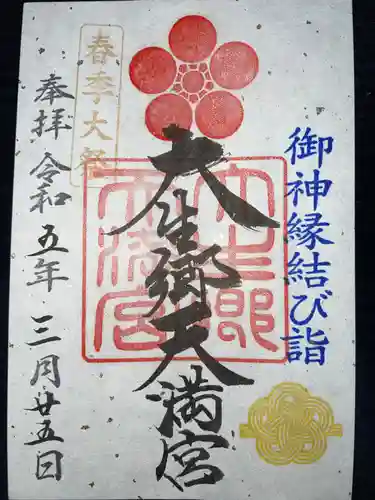 御神縁結び詣
大生郷天満宮
大生郷
天満宮
春季大祭
奉拝 令和五年三月廿五日